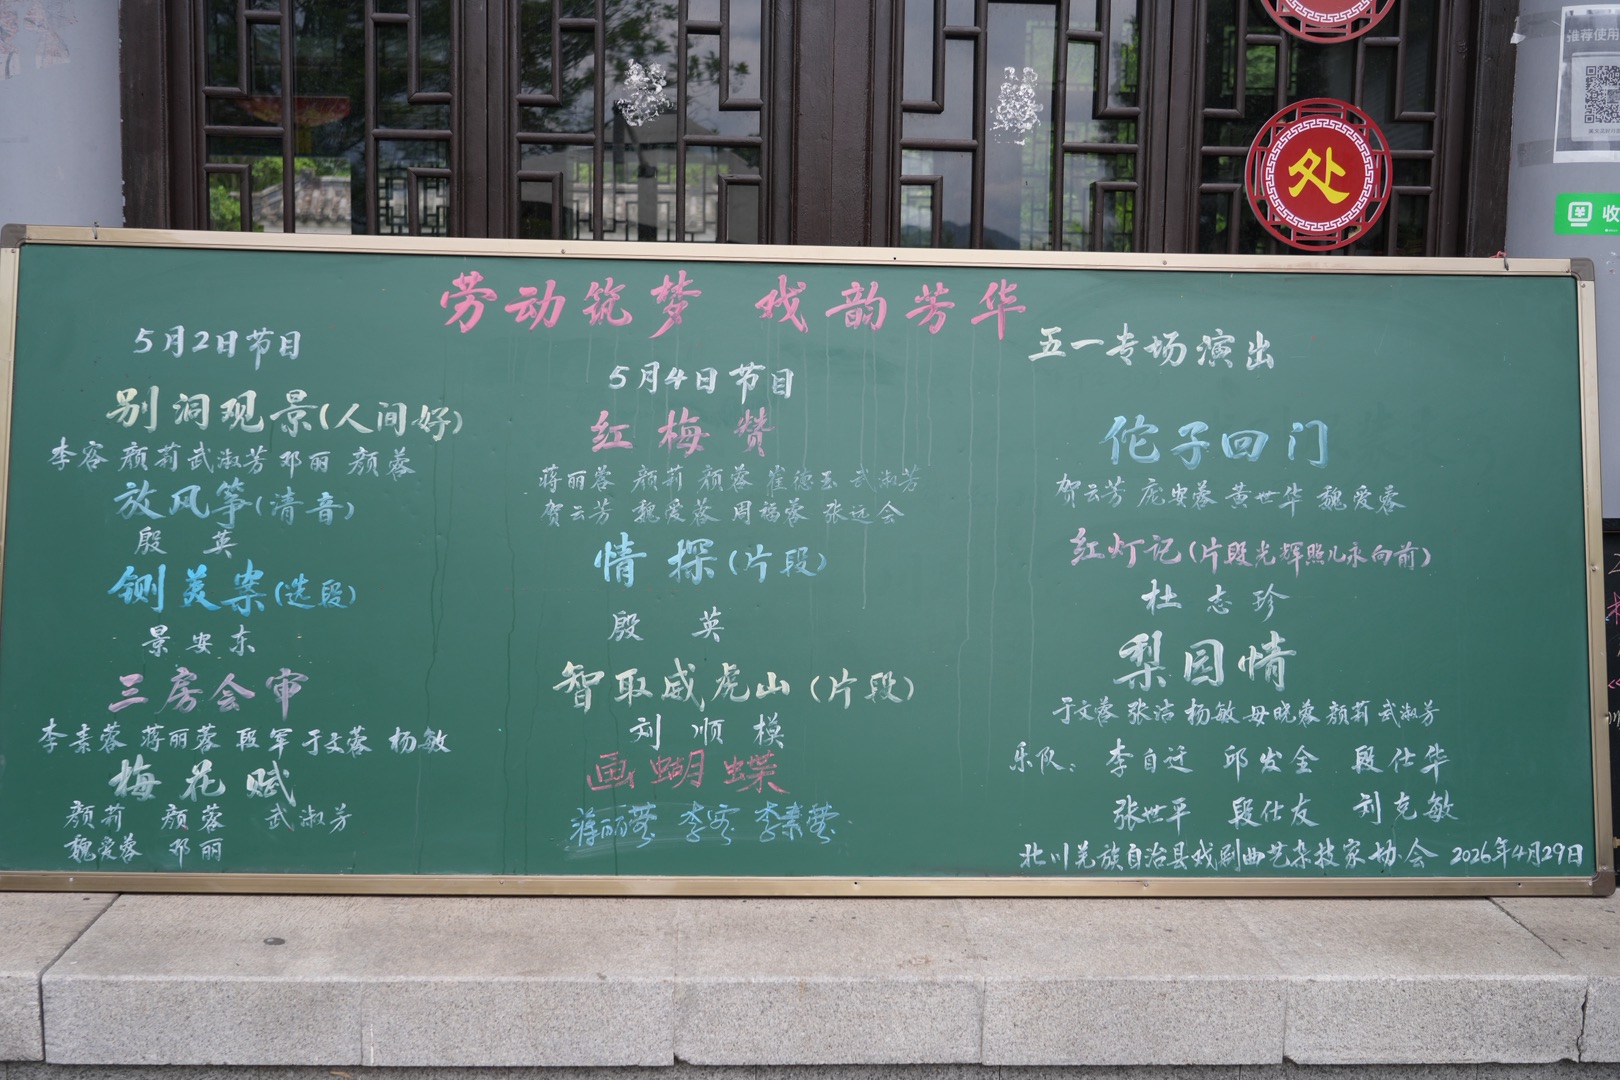 推荐使用
处
收
劳动筑梦 戏韵芳华
五一专场演出
5月2日节目
别洞观景(人间好)
李容 颜莉 武淑芳 邓丽 颜蓉
放风筝(清音)
殷 英
铡美案(选段)
景安东
三房会审
李素蓉 蒋丽蓉 段军 于文蓉 杨敏
梅花赋
颜莉 颜蓉 武淑芳
魏爱蓉 邓丽
5月4日节目
红梅赞
蒋丽蓉 颜莉 颜蓉 崔德玉 武淑芳
贺云芳 魏爱蓉 周福蓉 张远会
情探(片段)
殷 英
智取威虎山(片段)
刘顺模
画蝴蝶
蒋丽蓉 李容 李素蓉
佗子回门
贺云芳 庞安蓉 黄世华 魏爱蓉
红灯记(片段光辉照儿永向前)
杜志珍
梨园情
于文蓉 张洁 杨敏 母晓蓉 颜莉 武淑芳
乐队: 李自迁 邱发全 段仕华
张世平 段仕友 刘克敏
北川羌族自治县戏剧曲艺杂技家协会 2026年4月29日